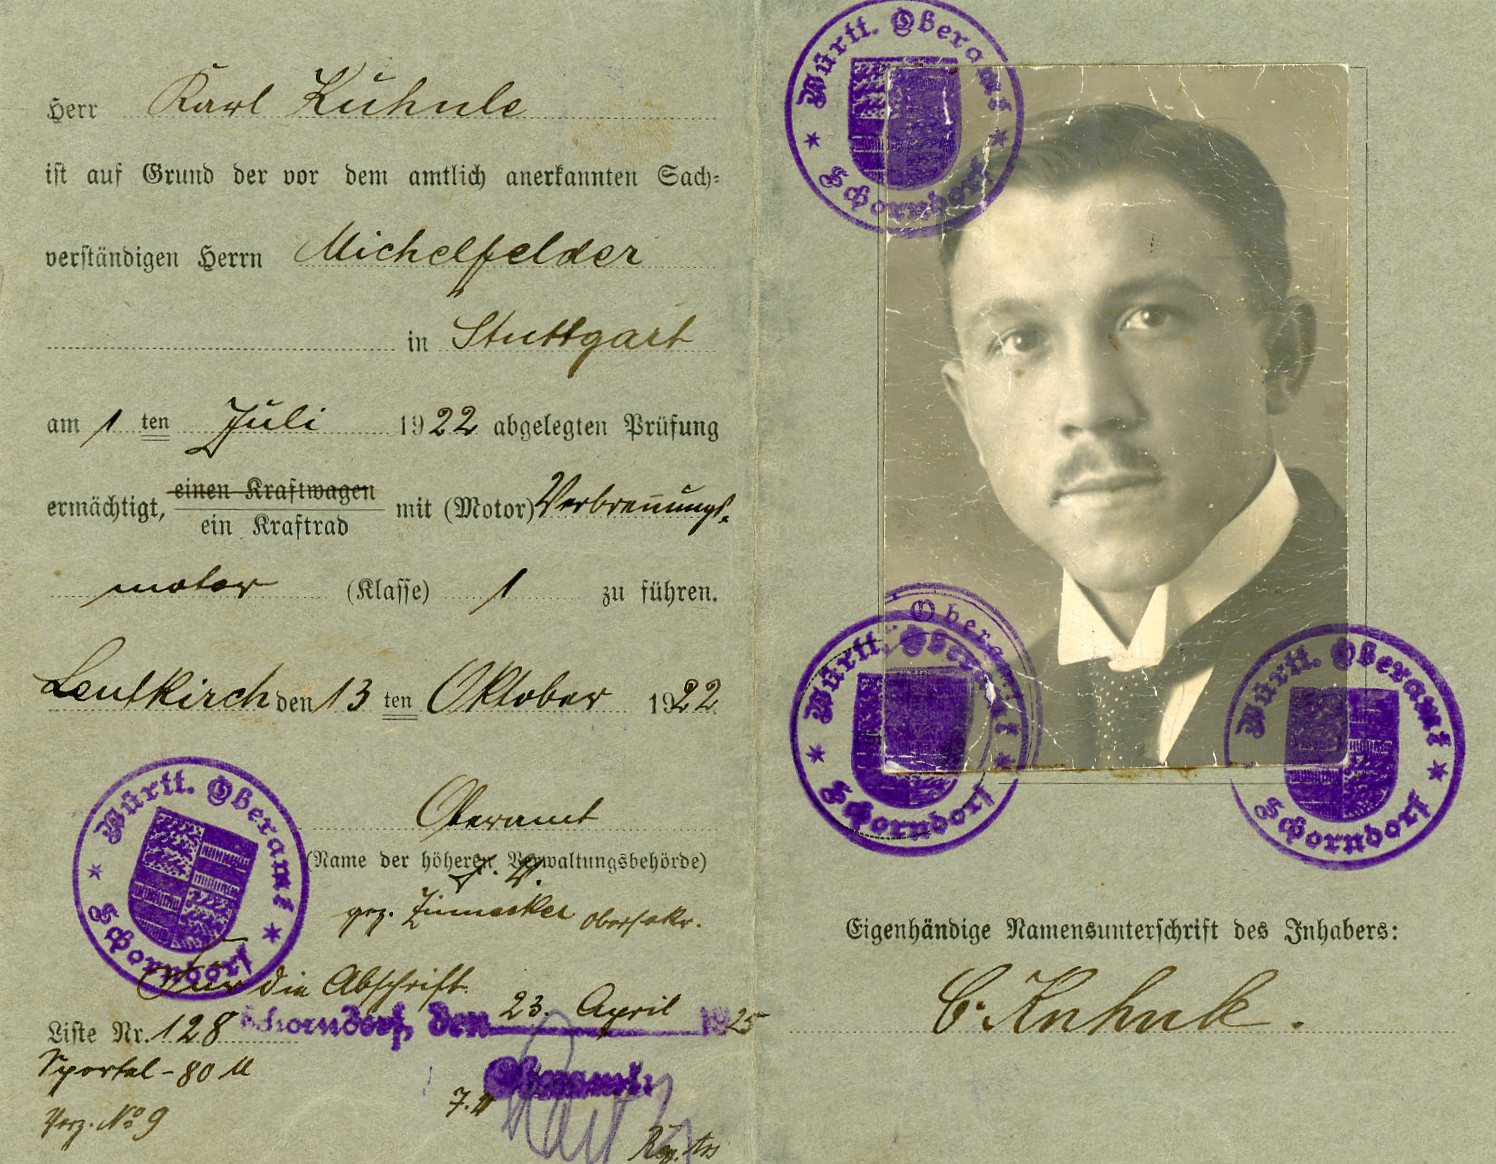 Herr Karl Kühnle
ist auf Grund der vor dem amtlich anerkannten Sach-
verständigen Herrn Michelfelder
in Stuttgart
am 1 ten Juli 1922 abgelegten Prüfung
ermächtigt, einen Kraftwagen
ein Kraftrad mit (Motor) Verbrennungs-
motor (Klasse) 1 zu führen.
Leutkirch den 13 ten Oktober 1922
Oberamt
(Name der höheren Verwaltungsbehörde)
J. V.
gez. Obersekr.
Für die Abschrift.
Schorndorf, den 23. April 1925
Liste Nr. 128
Sportel - 80 M
Oberamt:
Verz. No 9
Württ. Oberamt
Schorndorf
Württ. Oberamt
Schorndorf
Württ. Oberamt
Schorndorf
Oberamt
Württ. Oberamt
Schorndorf
Eigenhändige Namensunterschrift des Inhabers:
C. Kuhnle.